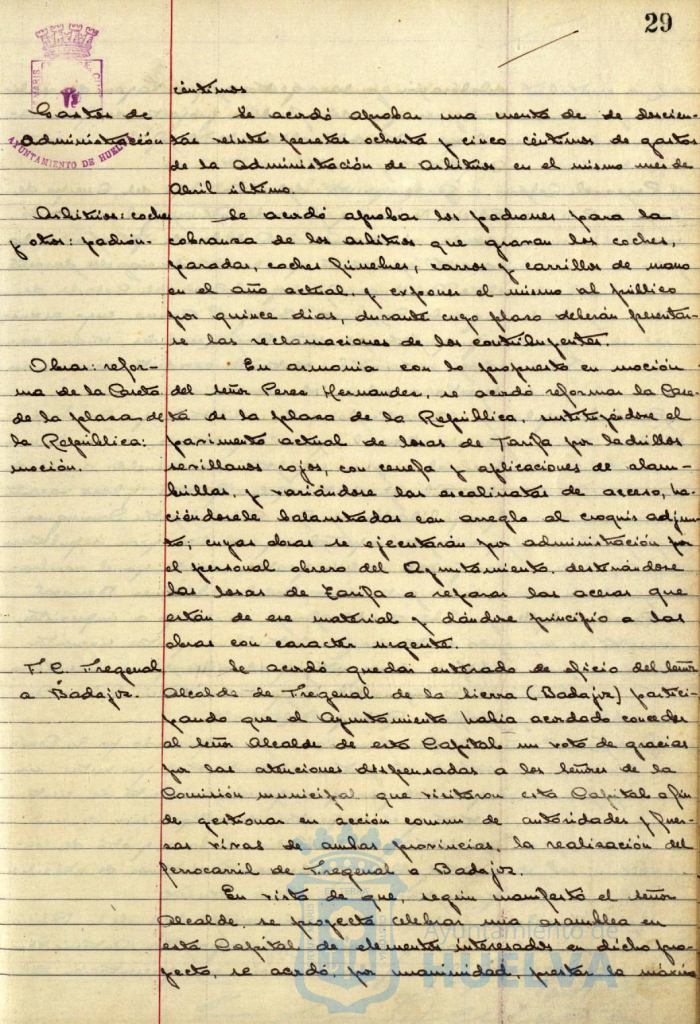 29
AYUNTAMIENTO DE HUELVA
céntimos
Gastos de
Administración
Se acordó aprobar una cuenta de doscien-
tas veinte pesetas ochenta y cinco céntimos de gastos
de la Administración de Arbitrios en el mismo mes de
Abril último.
Arbitrios: coches
y otros: padrón.
Se acordó aprobar los padrones para la
cobranza de los arbitrios que gravan los coches,
paradas, coches fúnebres, carros y carrillos de mano
en el año actual, y exponer el mismo al público
por quince dias, durante cuyo plazo deberán presentar-
se las reclamaciones de los contribuyentes.
Obras: refor-
ma de la Caseta
de la plaza de
la República:
moción.
En armonia con lo propuesto en moción
del señor Perez Hernandez, se acordó reformar la Case-
ta de la plaza de la República, sustituyéndose el
pavimento actual de losas de Tarifa por ladrillos
sevillanos rojos, con cenefa y aplicaciones de alam-
brillas, y variándose las escalinatas de acceso, ha-
ciéndosele balaustradas con arreglo al croquis adjun-
to; cuyas obras se ejecutarán por administración por
el personal obrero del Ayuntamiento, destinándose
las losas de Tarifa a reparar las aceras que
están de ese material y dándose principio a las
obras con caracter urgente.
F. C. Fregenal
a Badajoz.
Se acordó quedar enterado de oficio del señor
Alcalde de Fregenal de la Sierra (Badajoz) partici-
pando que el Ayuntamiento habia acordado conceder
al señor Alcalde de esta Capital un voto de gracias
por las atenciones dispensadas a los señores de la
Comisión municipal que visitaron esta Capital a fin
de gestionar en acción comun de autoridades y fuer-
zas vivas de ambas provincias, la realización del
ferrocarril de Fregenal a Badajoz.
En vista de que, según manifestó el señor
Alcalde, se proyecta celebrar una asamblea en
esta Capital de elementos interesados en dicho pro-
yecto, se acordó, por unanimidad, prestar la máxima
Ayuntamiento de
HUELVA